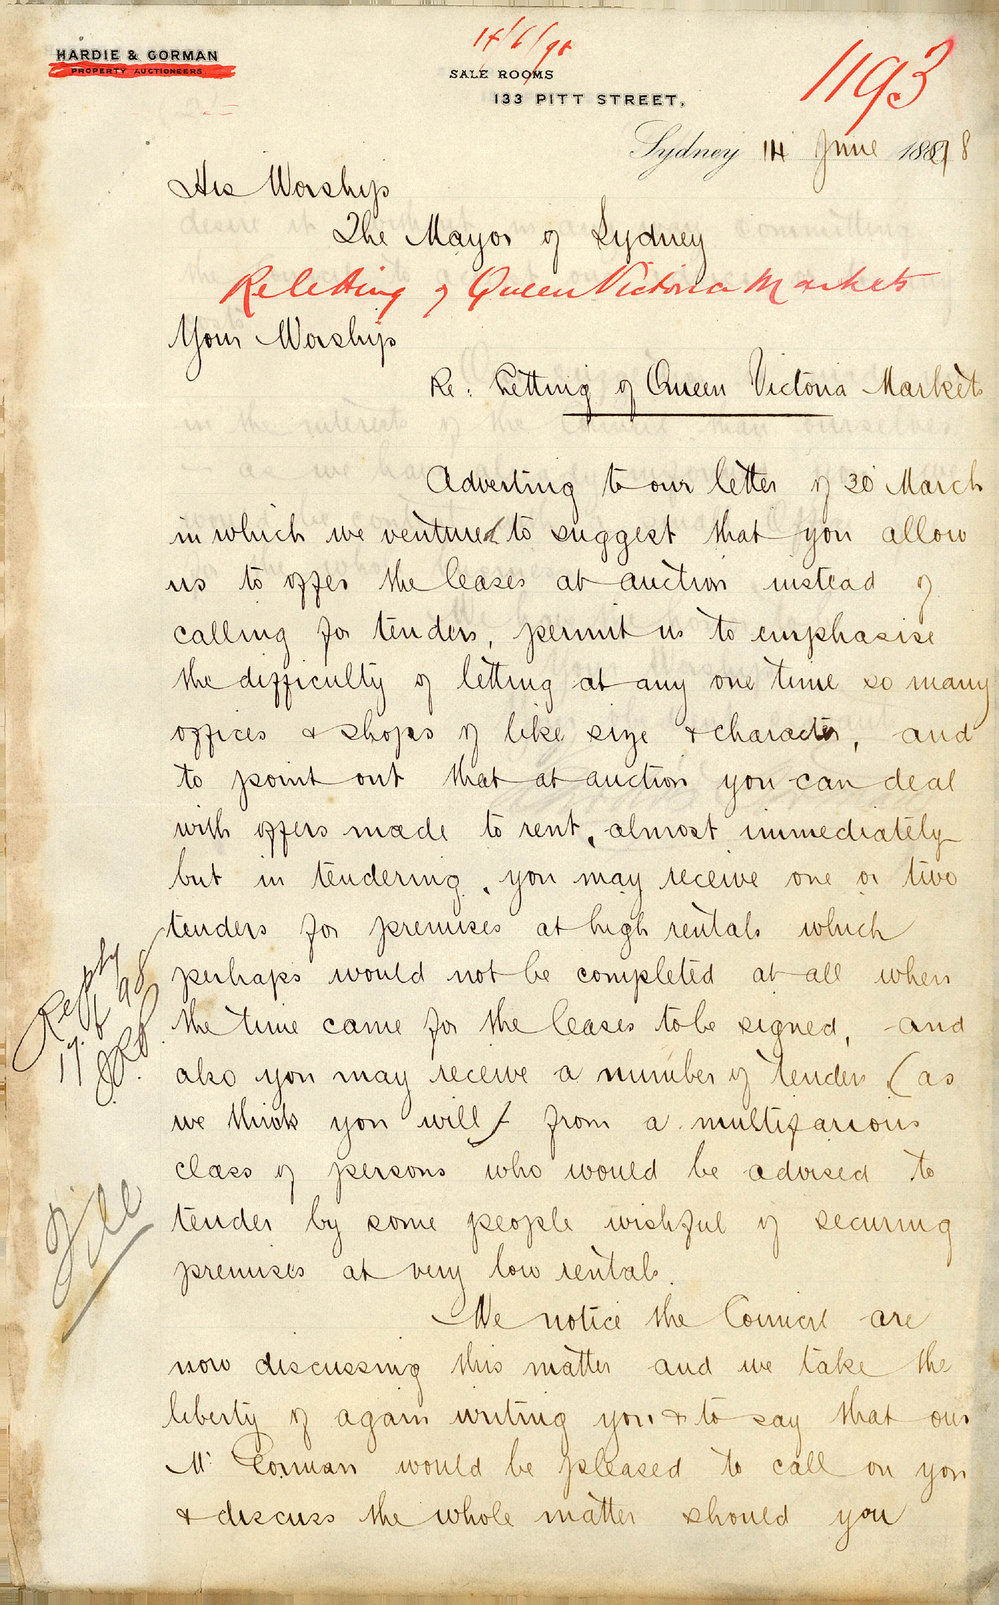 14/6/98
HARDIE & GORMAN
PROPERTY AUCTIONEERS
SALE ROOMS
133 PITT STREET,
1193
Sydney 14 June 1898
His Worship
The Mayor of Sydney
Reletting of Queen Victoria Markets
Your Worship
Re: Letting of Queen Victoria Markets
Adverting to our letter of 30 March
in which we ventured to suggest that you allow
us to offer the leases at auction instead of
calling for tenders, permit us to emphasise
the difficulty of letting at any one time so many
offices & shops of like size & character, and
to point out that at auction you can deal
with offers made to rent, almost immediately
but in tendering, you may receive one or two
tenders for premises at high rentals which
perhaps would not be completed at all when
the time came for the leases to be signed, and
also you may receive a number of tenders (as
we think you will) from a multifarious
class of persons who would be advised to
tender by some people wishful of securing
premises at very low rentals.
We notice the Council are
now discussing this matter and we take the
liberty of again writing you & to say that our
Mr Gorman would be pleased to call on you
& discuss the whole matter should you
Reply
17.6.98
File